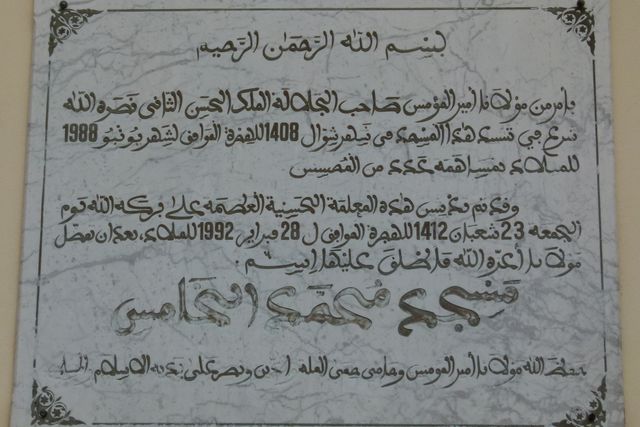 بسم الله الرحمان الرحيم
بامر من مولانا أمير المومنين صاحب الجلالة الملك الحسن الثاني نصره الله
شرع في تشييد هذا المسجد في شهر شوال 1408 للهجرة الموافق لشهر يونيو 1988
للميلاد بمساهمة عدد من المحسنين
وقد تم تدشين هذه المعلمة الحسنية العظيمة على بركة الله يوم
الجمعة 23 شعبان 1412 للهجرة الموافق ل 28 فبراير 1992 للميلاد، بعد ان تفضل
مولانا أعزه الله فأطلق عليها اسم :
مسجد محمد الخامس
حفظ الله مولانا أمير المومنين وحامي حمى الملة والدين ونصر على يديه الاسلام